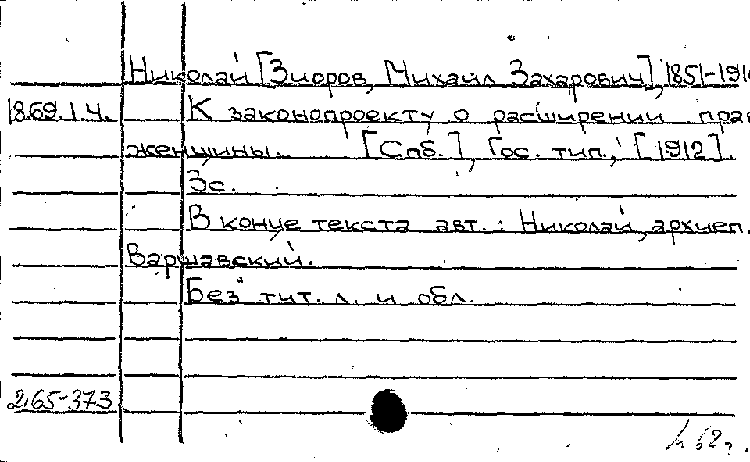 Николай [Зиоров, Михаил Захарович], 1851-191
18.69.1.4. К законопроекту о расширении прав
женщины. [Спб.], Гос. тип., [1912].
3с.
В конце текста авт.: Николай, архиеп.
Варшавский.
Без тит. л. и обл.
2.65-373